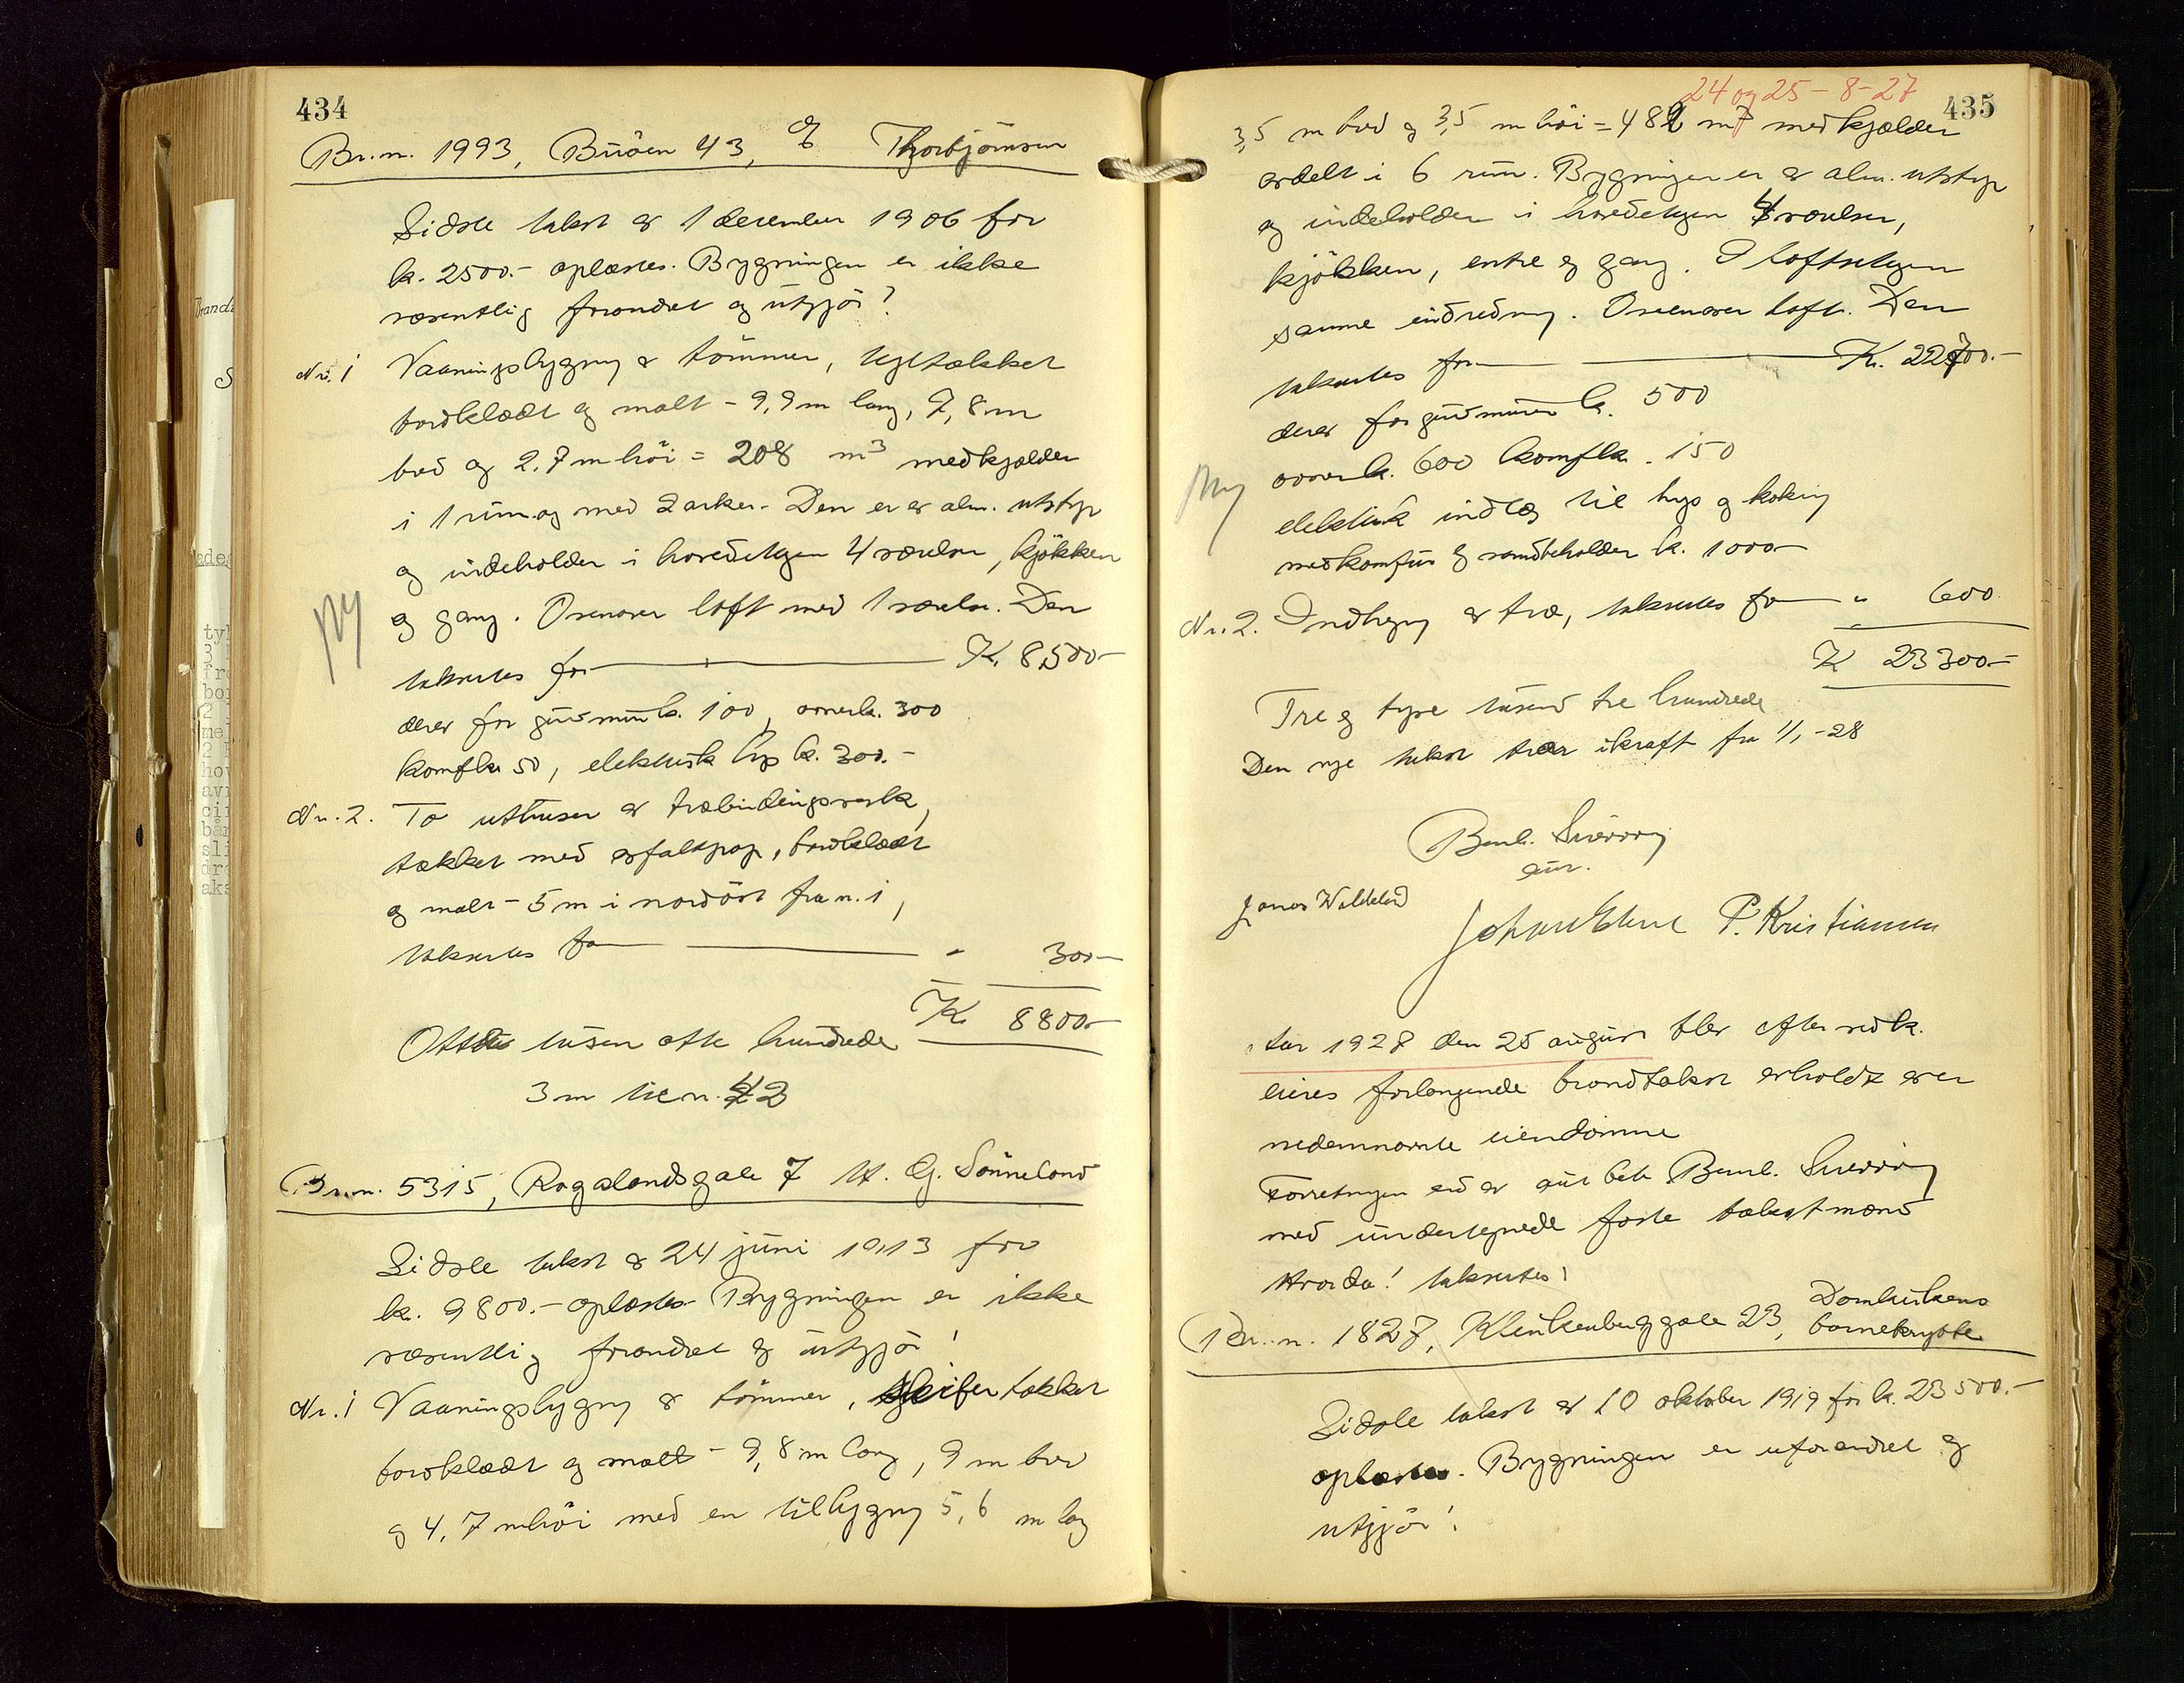 434
Br.n. 1993, Buöen 43, Thorbjörnsen
Sidste takst av 1 december 1906 for
kr. 2500.- oplæstes. Bygningen er ikke
væsentlig forandret og utgjör:
Nr. 1 Vaaningsbygning av tömmer, tegltækket
bordklædt og malt - 9,9 m lang, 7,8 m
bred og 2,7 m höi = 208 m³ med kjælder
i 1 rum og med 2 arker. Den er av alm. utstyr
og indeholder i hovedetagen 4 værelser, kjökken
og gang. Ovenover loft med 1 værelse. Den
Ny
takseres for K. 8500-
derav for grundmur kr. 100, ovner kr. 300
komfur kr. 50, elektrisk lys kr. 300.-
Nr. 2. To uthuser av træbindingsverk,
tækket med asfaltpap, bordklædt
og malt - 5 m i nordöst fra n. 1,
takseres for " 300-
K. 8800-
Otte tusen otte hundrede
3 m til n. 42
Br.n. 5315, Rogalandsgate 7 G. Sönneland
Sidste takst av 24 juni 1913 for
kr. 9800.- oplæstes. Bygningen er ikke
væsentlig forandret og utgjör:
Nr. 1 Vaaningsbygning av tömmer, skifertækket
bordklædt og malt - 9,8 m lang, 9 m bred
og 4,7 m höi med en tilbygning 5,6 m lang
24 og 25-8-27
435
3,5 m bred og 3,5 m höi = 487 m³ med kjælder
avdelt i 6 rum. Bygningen er av alm. utstyr
og indeholder i hovedetagen 4 værelser,
kjökken, entre og gang. I loftsetagen
samme indredning. Ovenover loft. Den
takseres for K. 22700.-
derav for grundmuren kr. 500
ovner kr. 600 komfur kr. 150
Ny
elektrisk indlæg til lys og kokning
med komfur og vandbeholder kr. 1000-
Nr. 2. Indhegning av træ, takseres for " 600
K 23300.-
Tre og tyve tusend tre hundrede
Den nye takst træer ikraft fra 1/1-28
Bernh. Sværen
aut.
Jonas Waldeland
P. Kristiansen
Aar 1927 den 25 august blev efter vedk.
eieres forlangende brandtakst avholdt over
nedennævnte eiendomme
Forretningen
med undertegnede faste takstmænd
Hvorda! takseres:
Br.n. 1827, Klinkenberggate 23, Domkirkens
barnekrybbe
Sidste takst av 10 oktober 1919 for kr. 23500.-
oplæstes. Bygningen er uforandret og
utgjör: